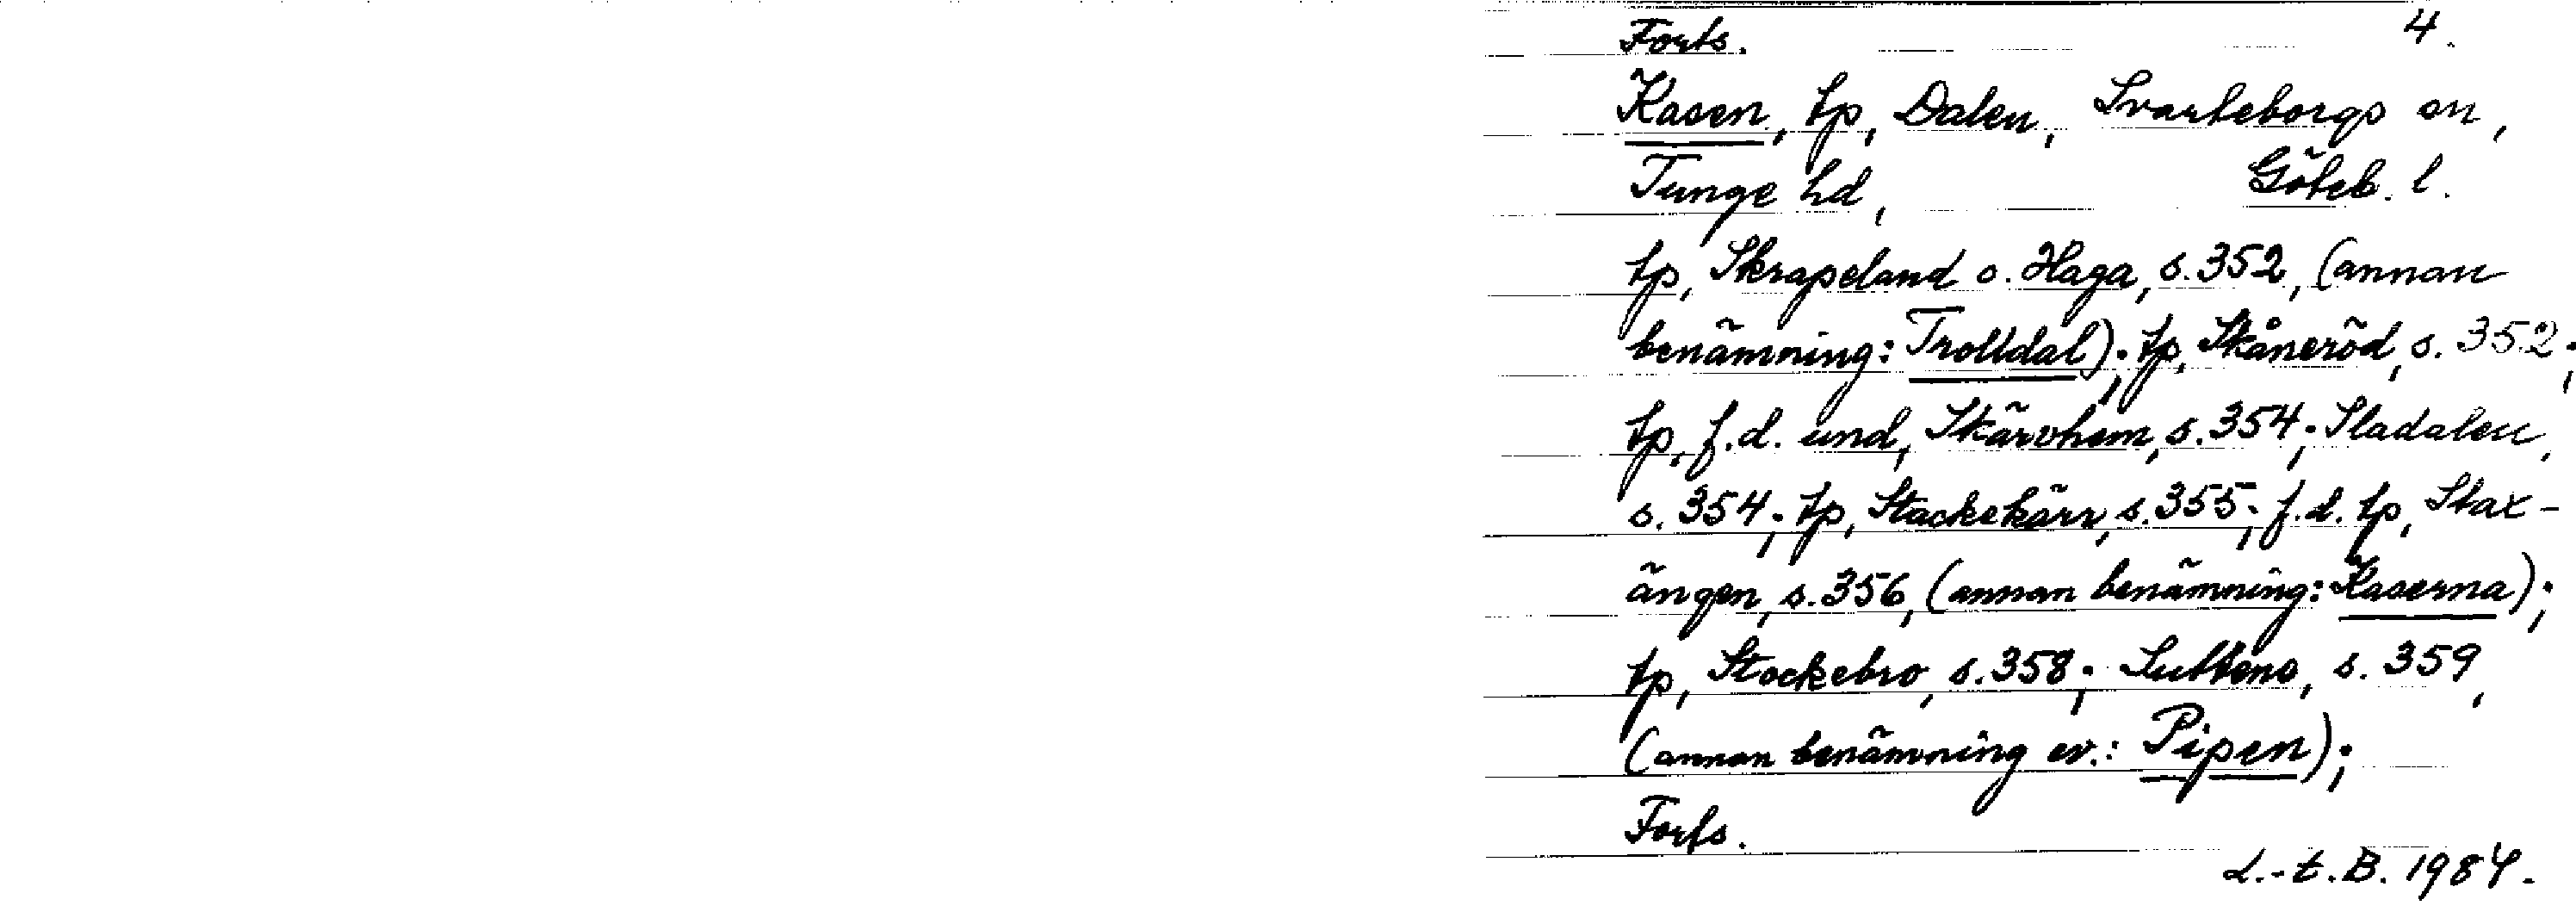 Forts. 4.
Kasen, tp, Dalen, Svarteborgs sn,
Tunge hd, Göteb. l.
tp, Skrapeland o. Haga, s. 352, (annan
benämning: Trolldal); tp, Skåneröd, s. 352;
tp, f.d. und, Skärvhem, s. 354; Sladalen,
s. 354; tp, Stackekärr, s. 355; f.d. tp, Stax-
ängen, s. 356, (annan benämning: Kaserna);
tp, Stockebro, s. 358; Suttene, s. 359,
(annan benämning ev.: Pipen);
Forts.
L.-t. B. 1984.